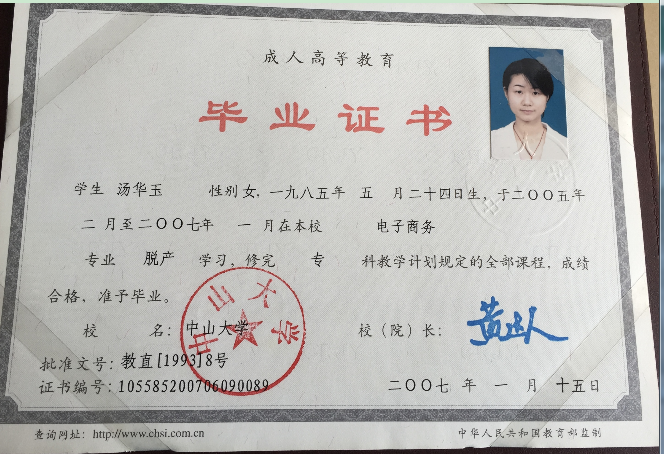 成人高等教育
毕业证书
学生 汤华玉 性别 女, 一九八五年 五 月二十四日生, 于二〇〇五年
二 月至二〇〇七年 一 月在本校 电子商务
专业 脱产 学习, 修完 专 科教学计划规定的全部课程, 成绩
合格, 准予毕业。
校 名: 中山大学 校(院)长: 黄达人
中山大学
批准文号: 教直[1993]8号
证书编号: 105585200706090089 二〇〇七 年 一 月 十五日
查询网址: http://www.chsi.com.cn 中华人民共和国教育部监制